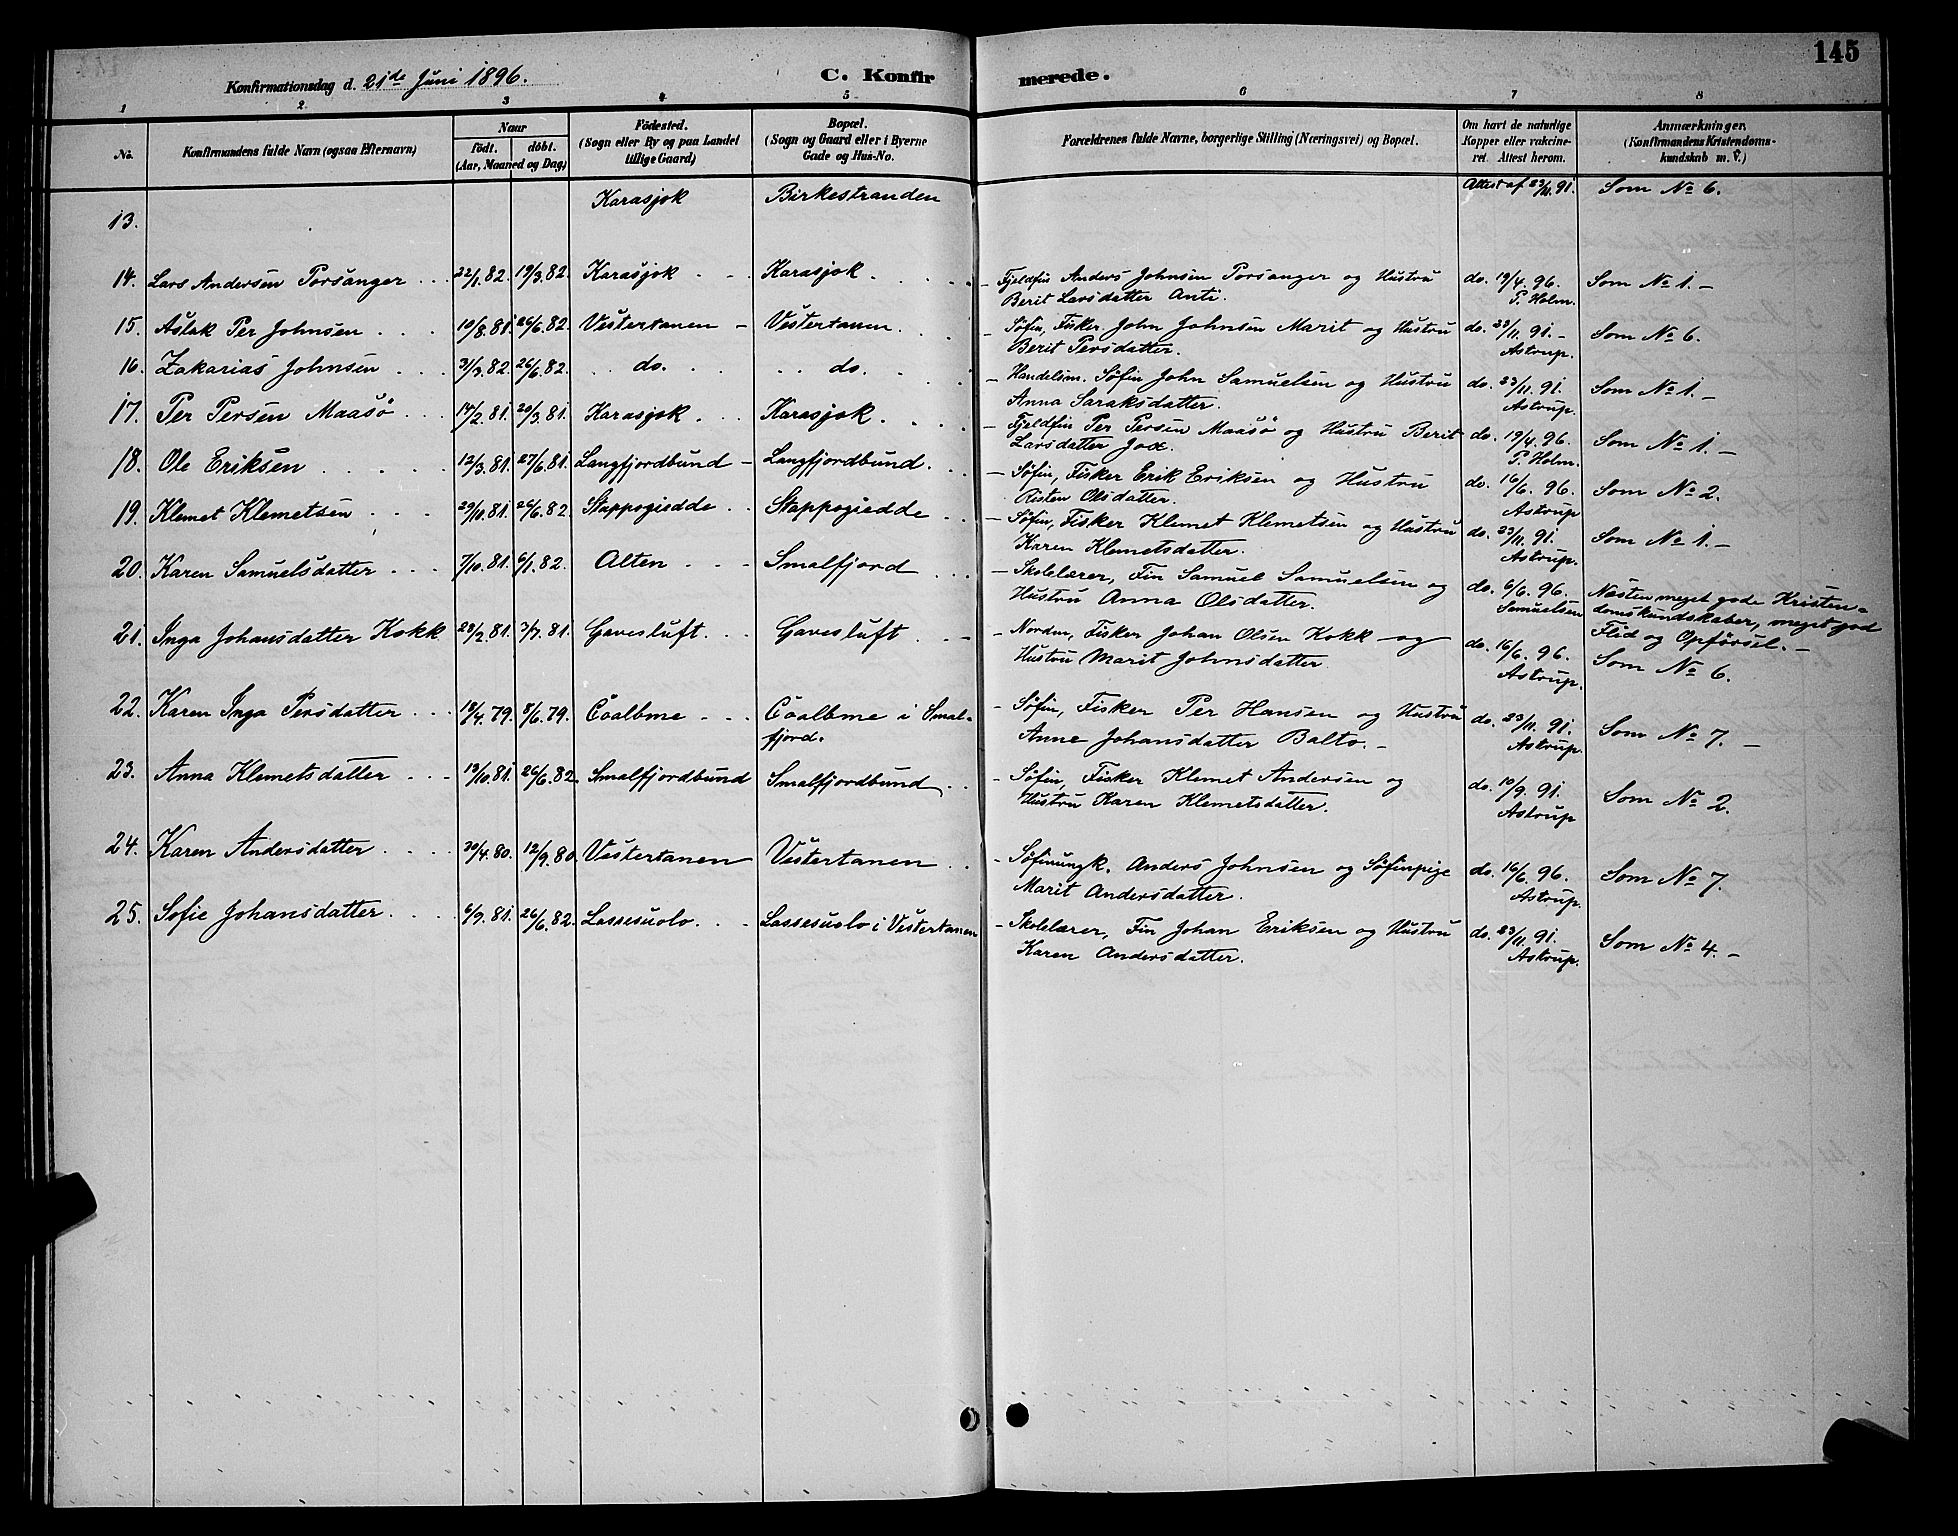 145
Konfirmationsdag d. 21de Juni 1896. C. Konfirmerede.
1 2 3 4 5 6 7 8
No. Konfirmandens fulde Navn (ogsaa Efternavn) Naar født. døbt. (Aar, Maaned og Dag) Fødested. (Sogn eller By og paa Landet tillige Gaard) Bopæl. (Sogn og Gaard eller i Byerne Gade og Hus-No. Forældrenes fulde Navne, borgerlige Stilling (Næringsvei) og Bopæl. Om havt de naturlige Kopper eller vakcineret. Attest herom. Anmærkninger. (Konfirmandens Kristendomskundskab m. V.)
13. Karasjok Birkestranden Attest af 23/11.91. Som No 6.
14. Lars Andersen Porsanger 22/1.82. 19/3.82. Karasjok Karasjok. Fjeldfin Anders Johnsen Porsanger og Hustru do. 19/4.96. Som No 1.
Berit Larsdatter Anti. P. Holm.
15. Aslak Per Johnsen 10/8.81. 26/6.82. Vestertanen Vestertanen. Søfin, Fisker John Johnsen Marit og Hustru do. 23/11.91. Som No 6.
Berit Persdatter. Astrup.
16. Zakarias Johnsen 31/3.82. 26/6.82. do. do. Handelsm. Søfin John Samuelsen og Hustru do. 23/11.91. Som No 1.
Anna Saraksdatter. Astrup.
17. Per Persen Maasø 14/2.81. 20/3.81. Karasjok Karasjok. Fjeldfin Per Persen Maasø og Hustru Berit do. 19/4.96. Som No 1.
Larsdatter Jox. P. Holm.
18. Ole Eriksen 12/3.81. 27/6.81. Langfjordbund Langfjordbund. Søfin, Fisker Erik Eriksen og Hustru do. 16/6.96. Som No 2.
Risten Olsdatter. Astrup
19. Klemet Klemetsen 29/10.81. 26/6.82. Stappogiedde Stappogiedde Søfin, Fisker Klemet Klemetsen og Hustru do. 23/11.91. Som No 1.
Karen Klemetsdatter. Astrup.
20. Karen Samuelsdatter 7/10.81. 6/1.82. Alten Smalfjord Skolelærer, Fin Samuel Samuelsen og do. 6/6.96. Næsten meget gode Kristen-
Hustru Anna Olsdatter. Samuelsen domskundskaber, meget god
Flid og Opførsel.
21. Inga Johansdatter Kokk 28/2.81. 3/7.81. Gavesluft. Gavesluft Nordm, Fisker Johan Olsen Kokk og do. 16/6.96. Som No 6.
Hustru Marit Johnsdatter. Astrup.
22. Karen Inga Persdatter 18/4.79. 8/6.79. Coalbme Coalbme i Smal- Søfin, Fisker Per Hansen og Hustru do. 23/11.91. Som No 7.
fjord. Anne Johansdatter Balto. Astrup.
23. Anna Klemetsdatter 13/10.81. 26/6.82. Smalfjordbund Smalfjordbund Søfin, Fisker Klemet Andersen og do. 10/9.91. Som No 2.
Hustru Karen Klemetsdatter. Astrup
24. Karen Andersdatter 30/4.80. 12/9.80. Vestertanen Vestertanen Søfinungk. Anders Johnsen og Søfinpige do. 16/6.96. Som No 7.
Marit Andersdatter. Astrup.
25. Sofie Johansdatter 6/9.81. 26/6.82. Lassesuolo. Lassesuolo i Vestertanen Skolelærer, Fin Johan Eriksen og Hustru do. 23/11.91. Som No 4.
Karen Andersdatter. Astrup.